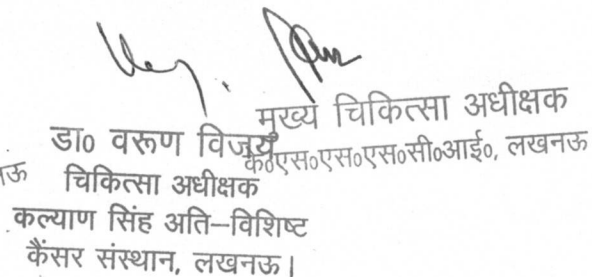 मुख्य चिकित्सा अधीक्षक
के०एस०एस०एस०सी०आई०, लखनऊ
डा० वरूण विजय
चिकित्सा अधीक्षक
कल्याण सिंह अति–विशिष्ट
कैंसर संस्थान, लखनऊ।